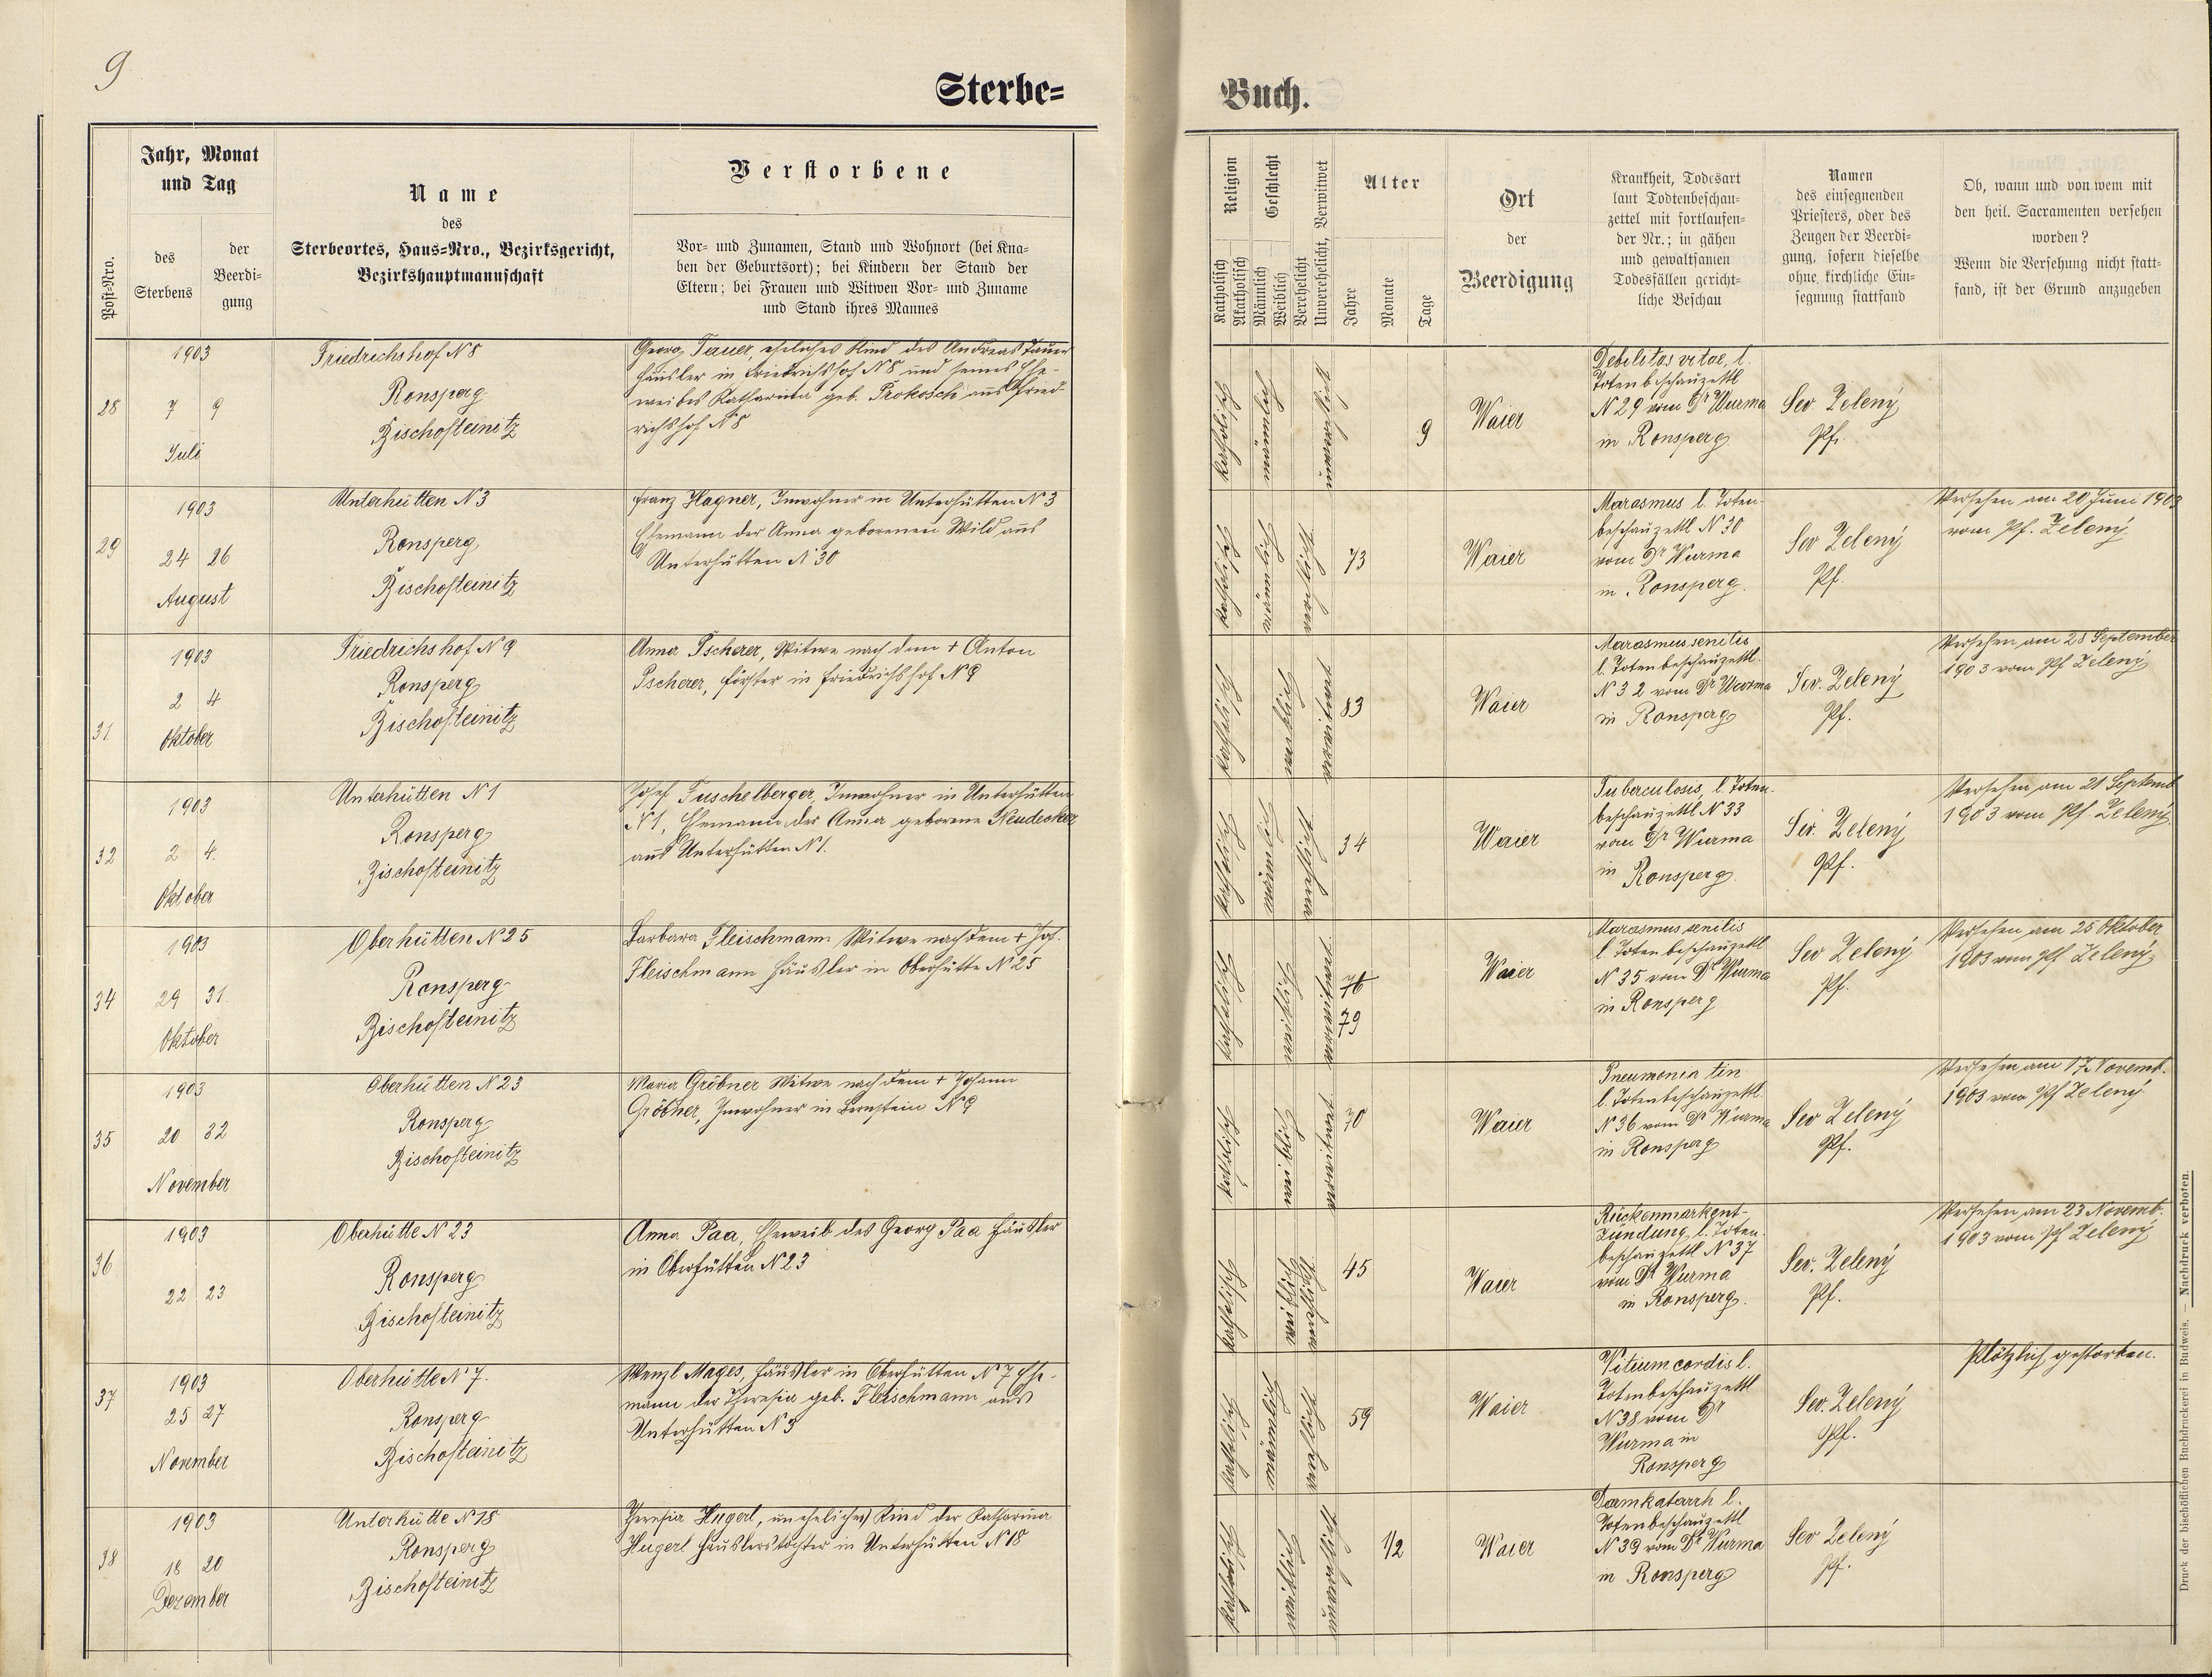 9
Sterbe=
Buch.
Post-Nro.
Jahr, Monat
und Tag
des
Sterbens
der
Beerdi-
gung
Name
des
Sterbeortes, Haus=Nro., Bezirksgericht,
Bezirkshauptmannschaft
Verstorbene
Vor- und Zunamen, Stand und Wohnort (bei Kna-
ben der Geburtsort); bei Kindern der Stand der
Eltern; bei Frauen und Witwen Vor- und Zuname
und Stand ihres Mannes
Religion
Katholisch
Akatholisch
Geschlecht
Männlich
Weiblich
Verehelicht
Unverehelicht, Verwitwet
Alter
Jahre
Monate
Tage
Ort
der
Beerdigung
Krankheit, Todesart
laut Todtenbeschau-
zettel mit fortlaufen-
der Nr.; in gähen
und gewaltsamen
Todesfällen gericht-
liche Beschau
Namen
des einsegnenden
Priesters, oder des
Zeugen der Beerdi-
gung, sofern dieselbe
ohne kirchliche Ein-
segnung stattfand
Ob, wann und von wem mit
den heil. Sacramenten versehen
worden?
Wenn die Versehung nicht statt-
fand, ist der Grund anzugeben
28
1903
7 9
Juli
Friedrichshof N 8
Ronsperg
Bischofteinitz
Georg Tauer, eheliches Kind des Andreas Tauer
Häusler in Friedrichshof N 8 und seines Ehe-
weibes Katharina geb. Prokosch aus Fried-
richshof N 8
katholisch
männlich
unverehelicht
9
Waier
Debilitas vitae, l.
Totenbeschauzettl
N 29 vom Dr Wurma
in Ronsperg
Sev. Zelený
Pf.
29
1903
24 26
August
Unterhütten N 3
Ronsperg
Bischofteinitz
Franz Hagner, Inwohner in Unterhütten N 3
Ehemann der Anna geborenen Wild aus
Unterhütten N 30
katholisch
männlich
verehelicht
73
Waier
Marasmus l. Toten-
beschauzettl N 30
vom Dr Wurma
in Ronsperg.
Sev Zelený
Pf.
Versehen am 20 Juni 1903
vom Pf. Zelený
31
1903
2 4
Oktober
Friedrichshof N 9
Ronsperg
Bischofteinitz
Anna Pscherer, Witwe nach dem + Anton
Pscherer, Förster in Friedrichshof N 9
katholisch
weiblich
verwitwet
83
Waier
Marasmus senilis
l. Totenbeschauzettl.
N 32 vom Dr Wurma
in Ronsperg
Sev. Zelený
Pf.
Versehen am 28 September
1903 vom Pf Zelený
32
1903
2 4.
Oktober
Unterhütten N 1
Ronsperg
Bischofteinitz
Josef Tuschelberger, Inwohner in Unterhütten
N 1, Ehemann der Anna geborene Neudecker
aus Unterhütten N 1.
katholisch
männlich
verehelicht
34
Waier
Tuberculosis, l Toten-
beschauzettl N 33
vom Dr Wurma
in Ronsperg
Sev. Zelený
Pf.
Versehen am 21 Septemb
1903 vom Pf. Zelený
34
1903
29 31.
Oktober
Oberhütten N 25
Ronsperg
Bischofteinitz
Barbara Fleischmann Witwe nach dem + Joh.
Fleischmann Häusler in Oberhütte N 25
katholisch
weiblich
verwitwet
76
79
Waier
Marasmus senilis
l. Totenbeschauzettl
N 35 vom Dr Wurma
in Ronsperg
Sev Zelený
Pf.
Versehen am 25 Oktober
1903 vom Pf Zelený
35
1903
20 22
November
Oberhütten N 23
Ronsperg
Bischofteinitz
Maria Gröbner Witwe nach dem + Johann
Gröbner, Inwohner in Bernstein N 9
katholisch
weiblich
verwitwet
70
Waier
Pneumonia
l. Totenbeschauzettl.
N 36 vom Dr Wurma
in Ronsperg
Sev Zelený
Pf.
Versehen am 17 Novemb.
1903 vom Pf Zelený
36
1903
22 23
Oberhütte N 23
Ronsperg
Bischofteinitz
Anna Paa, Eheweib des Georg Paa Häusler
in Oberhütten N 23
katholisch
weiblich
verehelicht
45
Waier
Rückenmarkent-
zündung, l. Toten-
beschauzettl N 37
vom Dr Wurma
in Ronsperg.
Sev. Zelený
Pf.
Versehen am 23 Novemb.
1903 vom Pf Zelený
37
1903
25 27
November
Oberhütte N 7.
Ronsperg
Bischofteinitz
Wenzl Mages, Häusler in Oberhütten N 7 Ehe-
mann der Theresia geb. Fleischmann aus
Unterhütten N 3
katholisch
männlich
verehelicht
59
Waier
Vitium cordis l.
Totenbeschauzettl
N 38 vom Dr
Wurma in
Ronsperg
Sev. Zelený
Pf.
Plötzlich gestorben.
38
1903
18 20
Dezember
Unterhütte N 18
Ronsperg
Bischofteinitz
Theresia Hugerl, uneheliches Kind der Katharina
Hugerl Häuslerstochter in Unterhütten N 18
katholisch
weiblich
unverehelicht
1/2
Waier
Darmkatarrh l.
Totenbeschauzettl
N 39 vom Dr Wurma
in Ronsperg
Sev Zelený
Pf.
Druck der bischöflichen Buchdruckerei in Budweis. — Nachdruck verboten.